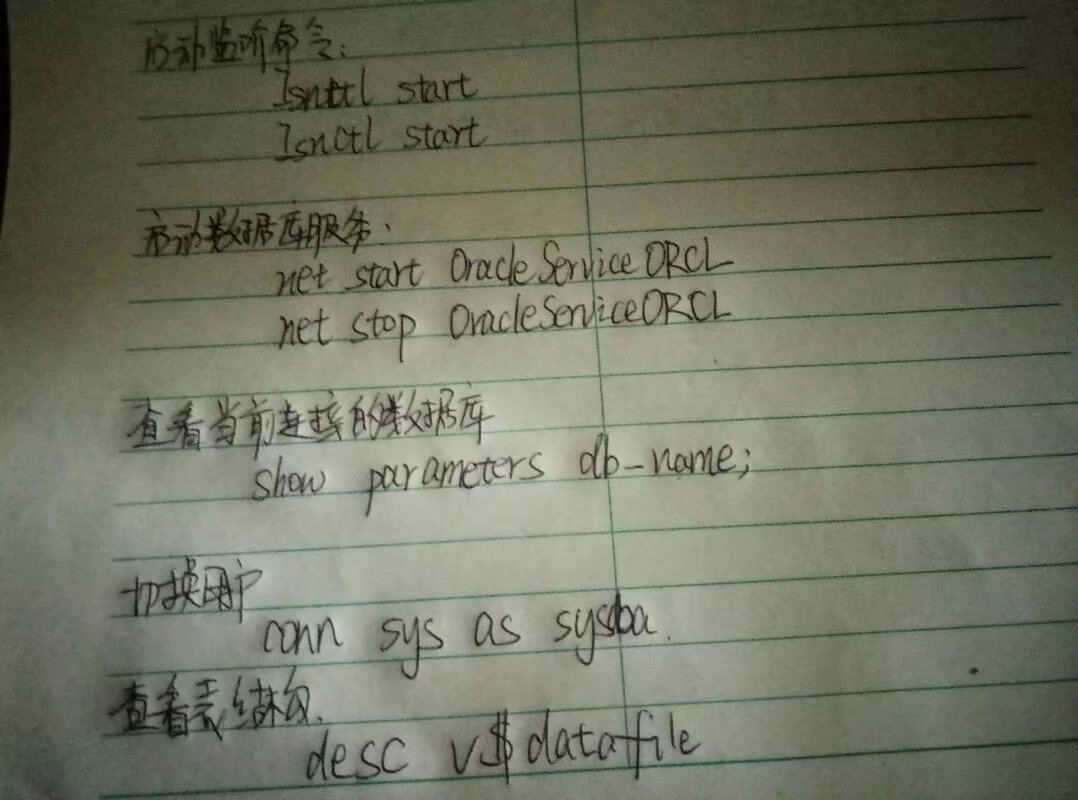 启动监听命令:
Isnttl start
Isnctl start
启动数据库服务:
net start OracleServiceORCL
net stop OracleServiceORCL
查看当前连接的数据库
show parameters db-name;
切换用户
conn sys as sysba.
查看表结构.
desc v$datafile